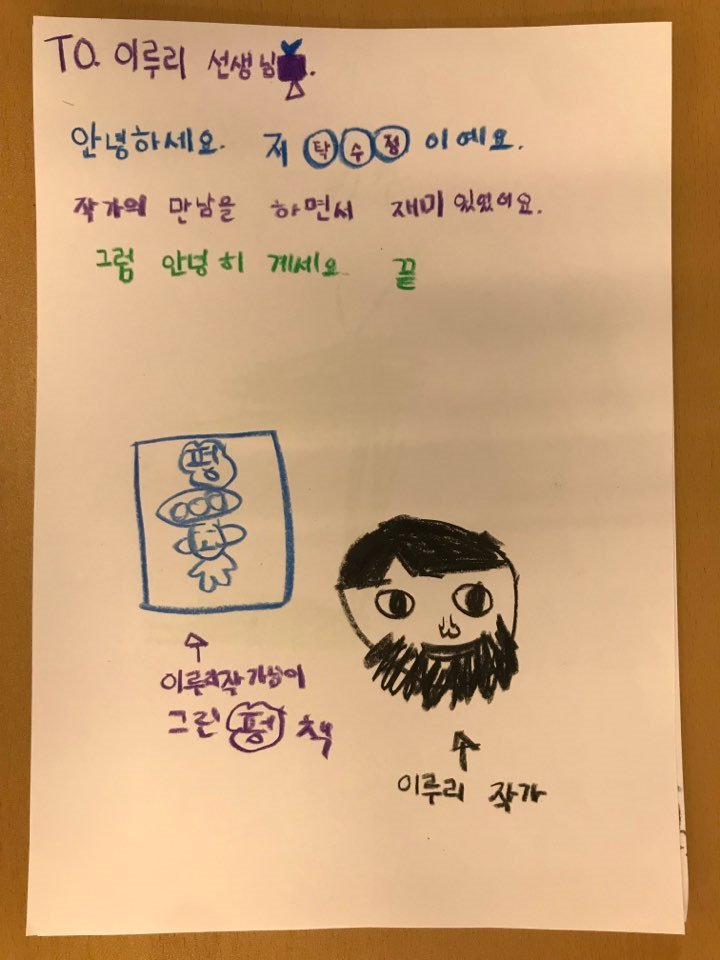 TO. 이루리 선생님.
안녕하세요. 저 탁수정이예요.
작가의 만남을 하면서 재미있었어요.
그럼 안녕히 계세요 끝
펑
이루리작가님이
그린 펑 책
이루리 작가